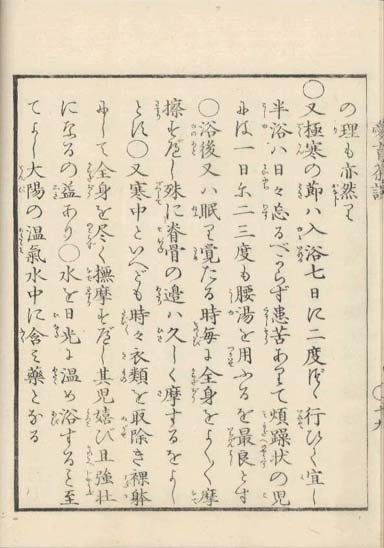 の理も亦然り
〇又極寒の節ハ入浴七日に二度ほど行ひて宜し
半浴ハ日々忘るべからず患苦ありて煩躁状の児
にハ一日に二三度も腰湯を用ふるを最良とす
〇浴後又ハ眠り覚たる時毎に全身をよく〳〵摩
擦すべし殊に脊骨の邊ハ久しく摩するをよし
とす〇又寒中といへども時々衣類を取除き裸躰
にして全身を尽く撫摩すべし其児嬉び且強壮
になるの益あり〇水を日光に温め浴すること至
てよし大陽の温氣水中に含ミ藥となる